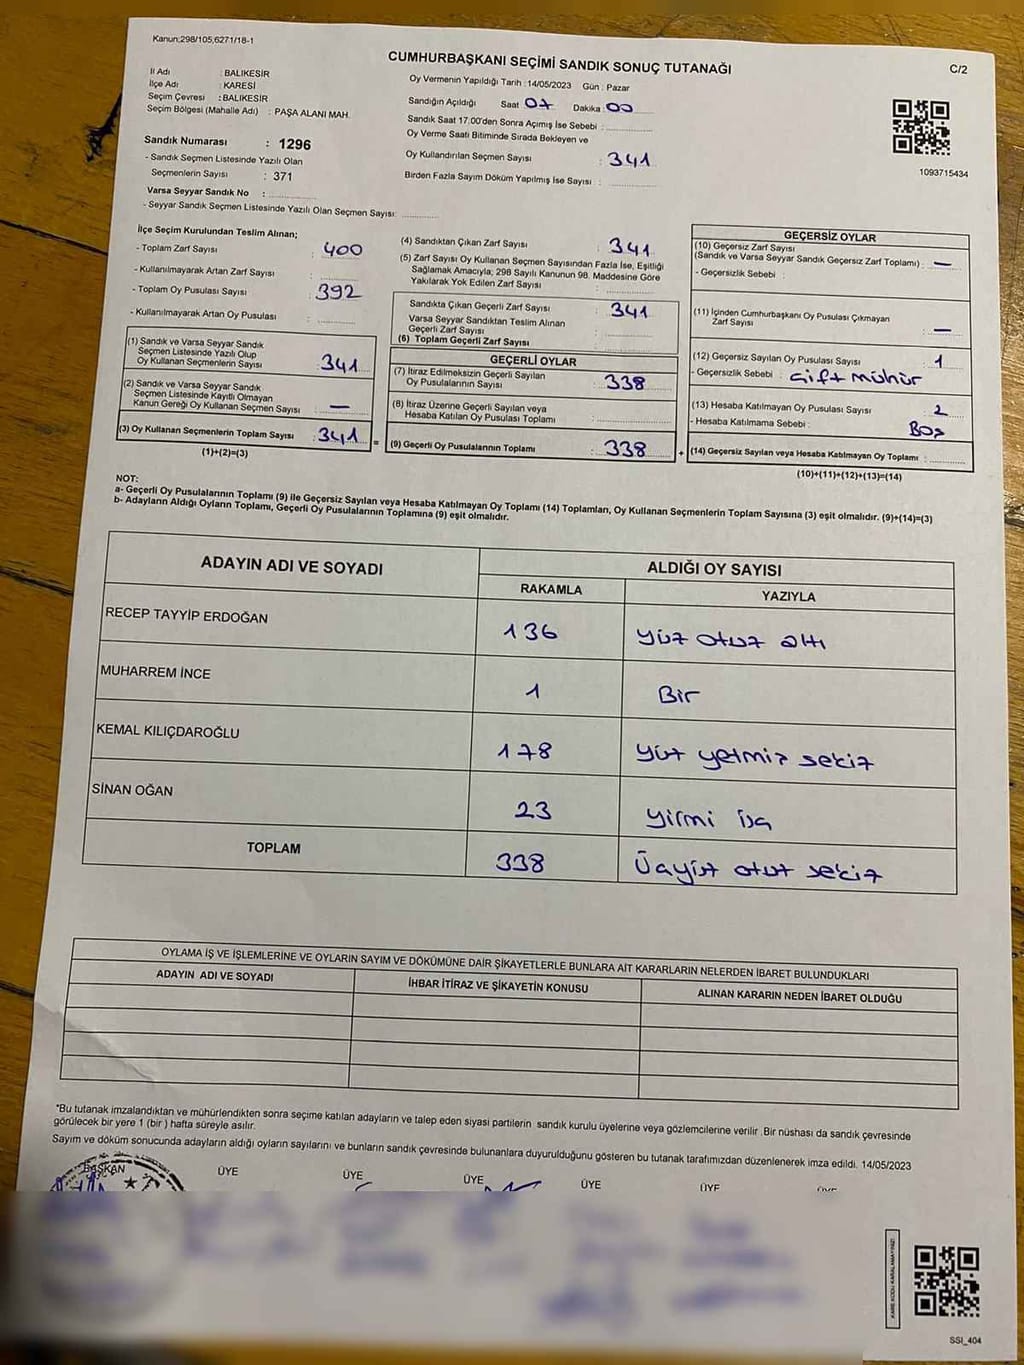 Kanun:298/105,6271/18-1
CUMHURBAŞKANI SEÇİMİ SANDIK SONUÇ TUTANAĞI
C/2
İl Adı : BALIKESİR
İlçe Adı : KARESİ
Seçim Çevresi : BALIKESİR
Seçim Bölgesi (Mahalle Adı) : PAŞA ALANI MAH.
Sandık Numarası : 1296
- Sandık Seçmen Listesinde Yazılı Olan
Seçmenlerin Sayısı : 371
Varsa Seyyar Sandık No :
- Seyyar Sandık Seçmen Listesinde Yazılı Olan Seçmen Sayısı:
Oy Vermenin Yapıldığı Tarih :14/05/2023 Gün : Pazar
Sandığın Açıldığı Saat 07 Dakika 00
Sandık Saat 17:00'den Sonra Açımış İse Sebebi :
Oy Verme Saati Bitiminde Sırada Bekleyen ve
Oy Kullandırılan Seçmen Sayısı : 341
Birden Fazla Sayım Döküm Yapılmış İse Sayısı :
1093715434
İlçe Seçim Kurulundan Teslim Alınan;
- Toplam Zarf Sayısı : 400
- Kullanılmayarak Artan Zarf Sayısı :
- Toplam Oy Pusulası Sayısı : 392
- Kullanılmayarak Artan Oy Pusulası :
(1) Sandık ve Varsa Seyyar Sandık
Seçmen Listesinde Yazılı Olup
Oy Kullanan Seçmenlerin Sayısı : 341
(2) Sandık ve Varsa Seyyar Sandık
Seçmen Listesinde Kayıtlı Olmayan
Kanun Gereği Oy Kullanan Seçmen Sayısı : —
(3) Oy Kullanan Seçmenlerin Toplam Sayısı : 341
(1)+(2)=(3)
=
(4) Sandıktan Çıkan Zarf Sayısı : 341
(5) Zarf Sayısı Oy Kullanan Seçmen Sayısından Fazla İse, Eşitliği
Sağlamak Amacıyla; 298 Sayılı Kanunun 98. Maddesine Göre
Yakılarak Yok Edilen Zarf Sayısı :
Sandıkta Çıkan Geçerli Zarf Sayısı : 341
Varsa Seyyar Sandıktan Teslim Alınan
Geçerli Zarf Sayısı :
(6) Toplam Geçerli Zarf Sayısı
GEÇERLİ OYLAR
(7) İtiraz Edilmeksizin Geçerli Sayılan
Oy Pusulalarının Sayısı : 338
(8) İtiraz Üzerine Geçerli Sayılan veya
Hesaba Katılan Oy Pusulası Toplamı :
(9) Geçerli Oy Pusulalarının Toplamı : 338
+
GEÇERSİZ OYLAR
(10) Geçersiz Zarf Sayısı
(Sandık ve Varsa Seyyar Sandık Geçersiz Zarf Toplamı) : —
- Geçersizlik Sebebi :
(11) İçinden Cumhurbaşkanı Oy Pusulası Çıkmayan
Zarf Sayısı : —
(12) Geçersiz Sayılan Oy Pusulası Sayısı : 1
- Geçersizlik Sebebi : Çift mühür
(13) Hesaba Katılmayan Oy Pusulası Sayısı : 2
- Hesaba Katılmama Sebebi : Boş
(14) Geçersiz Sayılan veya Hesaba Katılmayan Oy Toplamı :
(10)+(11)+(12)+(13)=(14)
NOT:
a- Geçerli Oy Pusulalarının Toplamı (9) ile Geçersiz Sayılan veya Hesaba Katılmayan Oy Toplamı (14) Toplamları, Oy Kullanan Seçmenlerin Toplam Sayısına (3) eşit olmalıdır. (9)+(14)=(3)
b- Adayların Aldığı Oyların Toplamı, Geçerli Oy Pusulalarının Toplamına (9) eşit olmalıdır.
ADAYIN ADI VE SOYADI
ALDIĞI OY SAYISI
RAKAMLA YAZIYLA
RECEP TAYYİP ERDOĞAN 136 Yüz otuz altı
MUHARREM İNCE 1 Bir
KEMAL KILIÇDAROĞLU 178 Yüz yetmiş sekiz
SİNAN OĞAN 23 Yirmi üç
TOPLAM 338 Üçyüz otuz sekiz
OYLAMA İŞ VE İŞLEMLERİNE VE OYLARIN SAYIM VE DÖKÜMÜNE DAİR ŞİKAYETLERLE BUNLARA AİT KARARLARIN NELERDEN İBARET BULUNDUKLARI
ADAYIN ADI VE SOYADI İHBAR İTİRAZ VE ŞİKAYETİN KONUSU ALINAN KARARIN NEDEN İBARET OLDUĞU
*Bu tutanak imzalandıktan ve mühürlendikten sonra seçime katılan adayların ve talep eden siyasi partilerin sandık kurulu üyelerine veya gözlemcilerine verilir .Bir nüshası da sandık çevresinde
görülecek bir yere 1 (bir ) hafta süreyle asılır.
Sayım ve döküm sonucunda adayların aldığı oyların sayılarını ve bunların sandık çevresinde bulunanlara duyurulduğunu gösteren bu tutanak tarafımızdan düzenlenerek imza edildi. 14/05/2023
BAŞKAN ÜYE ÜYE ÜYE ÜYE ÜYE
KARE KODU KARALAMAYINIZ!
SSI_404